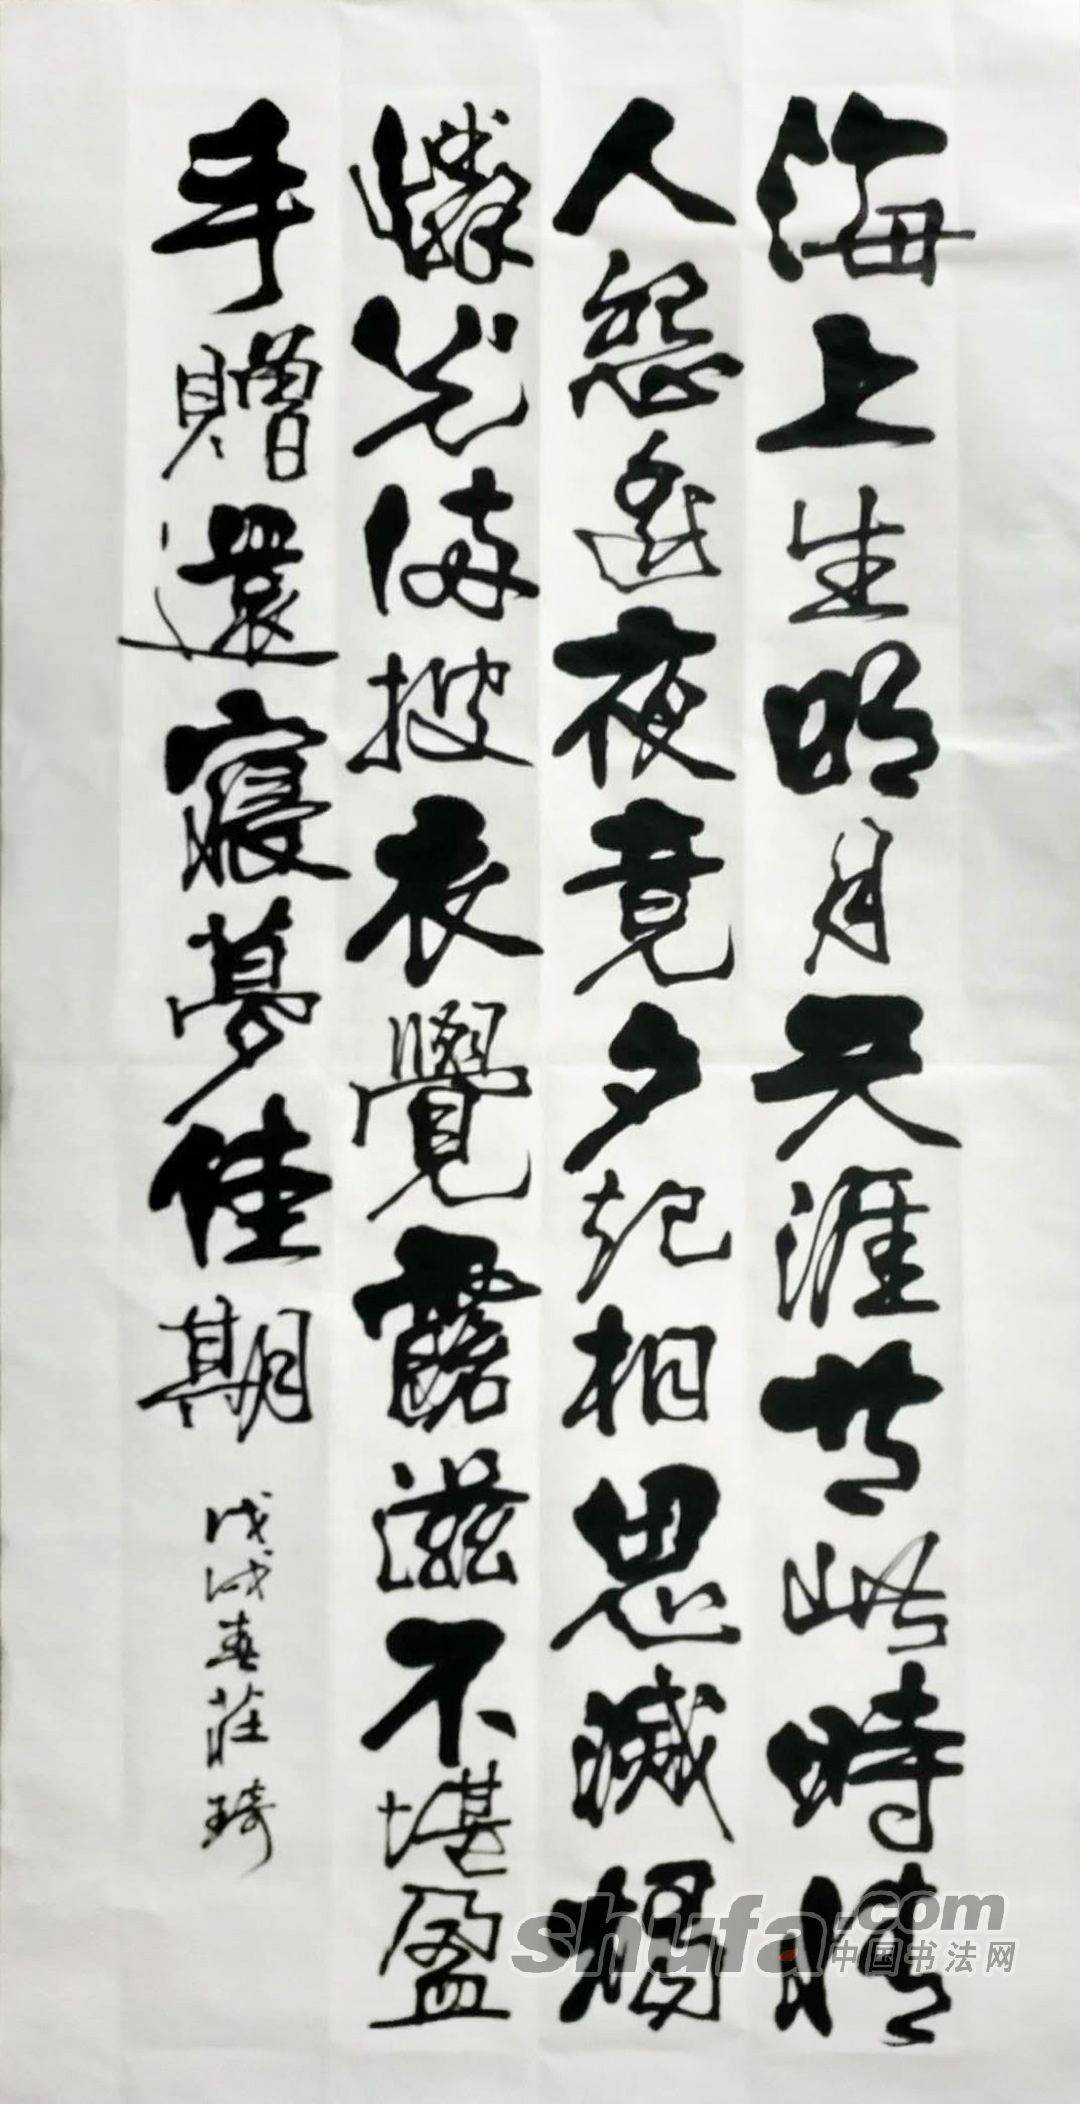 海上生明月天涯共此時情
人怨遙夜竟夕起相思滅燭
憐光滿披衣覺露滋不堪盈
手贈還寢夢佳期
戊戌春莊琦
shufa.com
中国书法网